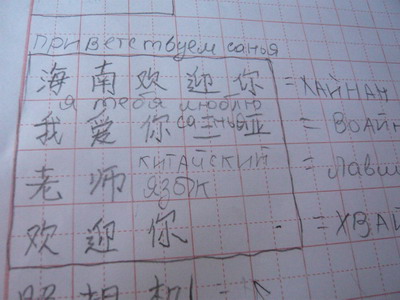 приветствуем санья
海南欢迎你 = ХАЙНАН
я тебя люблю
我爱你三亚 = ВОАЙН
санья
老师 китайский = Лавш
язык
欢迎你 = ХВАЙ
照相机 =